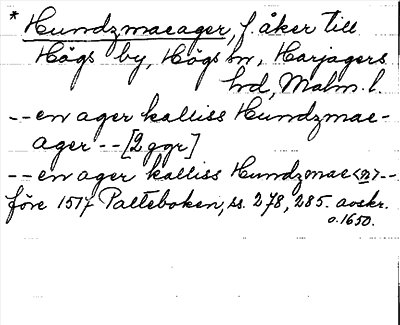 * Hundzmaeager, f. åker till
Högs by, Högs sn, Harjagers
hd, Malm. l.
-- en ager kalliss Hundzmae-
ager -- [2 ggr]
-- en ager kalliss Hundzmae<n>--
före 1517 Palteboken, ss. 278, 285. avskr.
o. 1650.